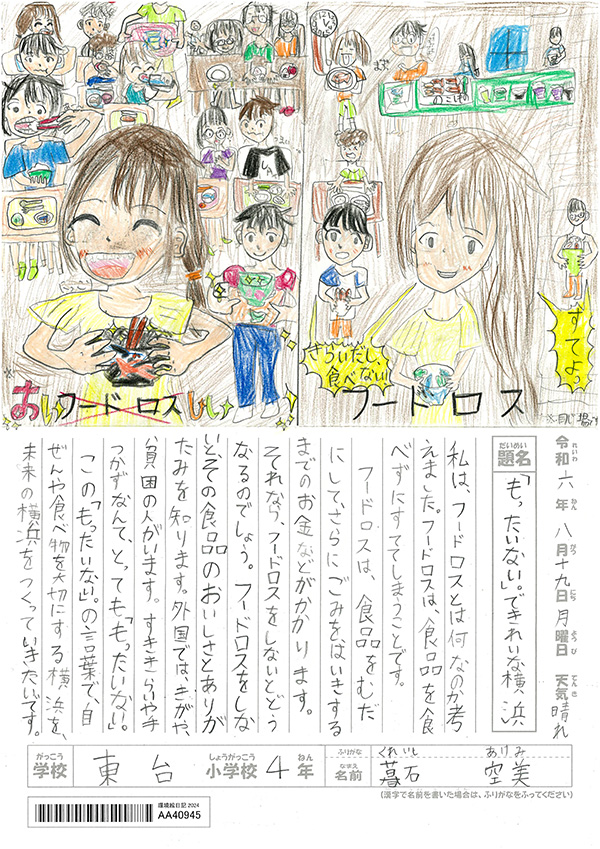 おいフードロスしい
きらいだし、食べない!!
すてよっ
フードロス
令和六年八月十九日月曜日 天気 晴れ
れいわ ねん がつ にち ようび てんき
だいめい
題名「もったいない」。できれいな横浜
私は、フードロスとは何なのか考
えました。フードロスは、食品を食
べずにすててしまうことです。
フードロスは、食品をむだ
にしてさらにごみをはいきする
までのお金などがかかります。
それなら、フードロスをしないとどう
なるのでしょう。フードロスをしな
いと、その食品のおいしさとありが
たみを知ります。外国では、きがや、
貧困の人がいます。すききらいや手
つかずなんて、とっても「もったいない」。
この「もったいない」。の言葉で、自
ぜんや食べ物を大切にする横浜を、
未来の横浜をつくっていきたいです。
がっこう しょうがっこう ねん ふりがな くれいし あけみ
学校 東台 小学校 4年 なまえ 名前 暮石 空美
(漢字で名前を書いた場合は、ふりがなをふってください)
環境絵日記 2024
AA40945